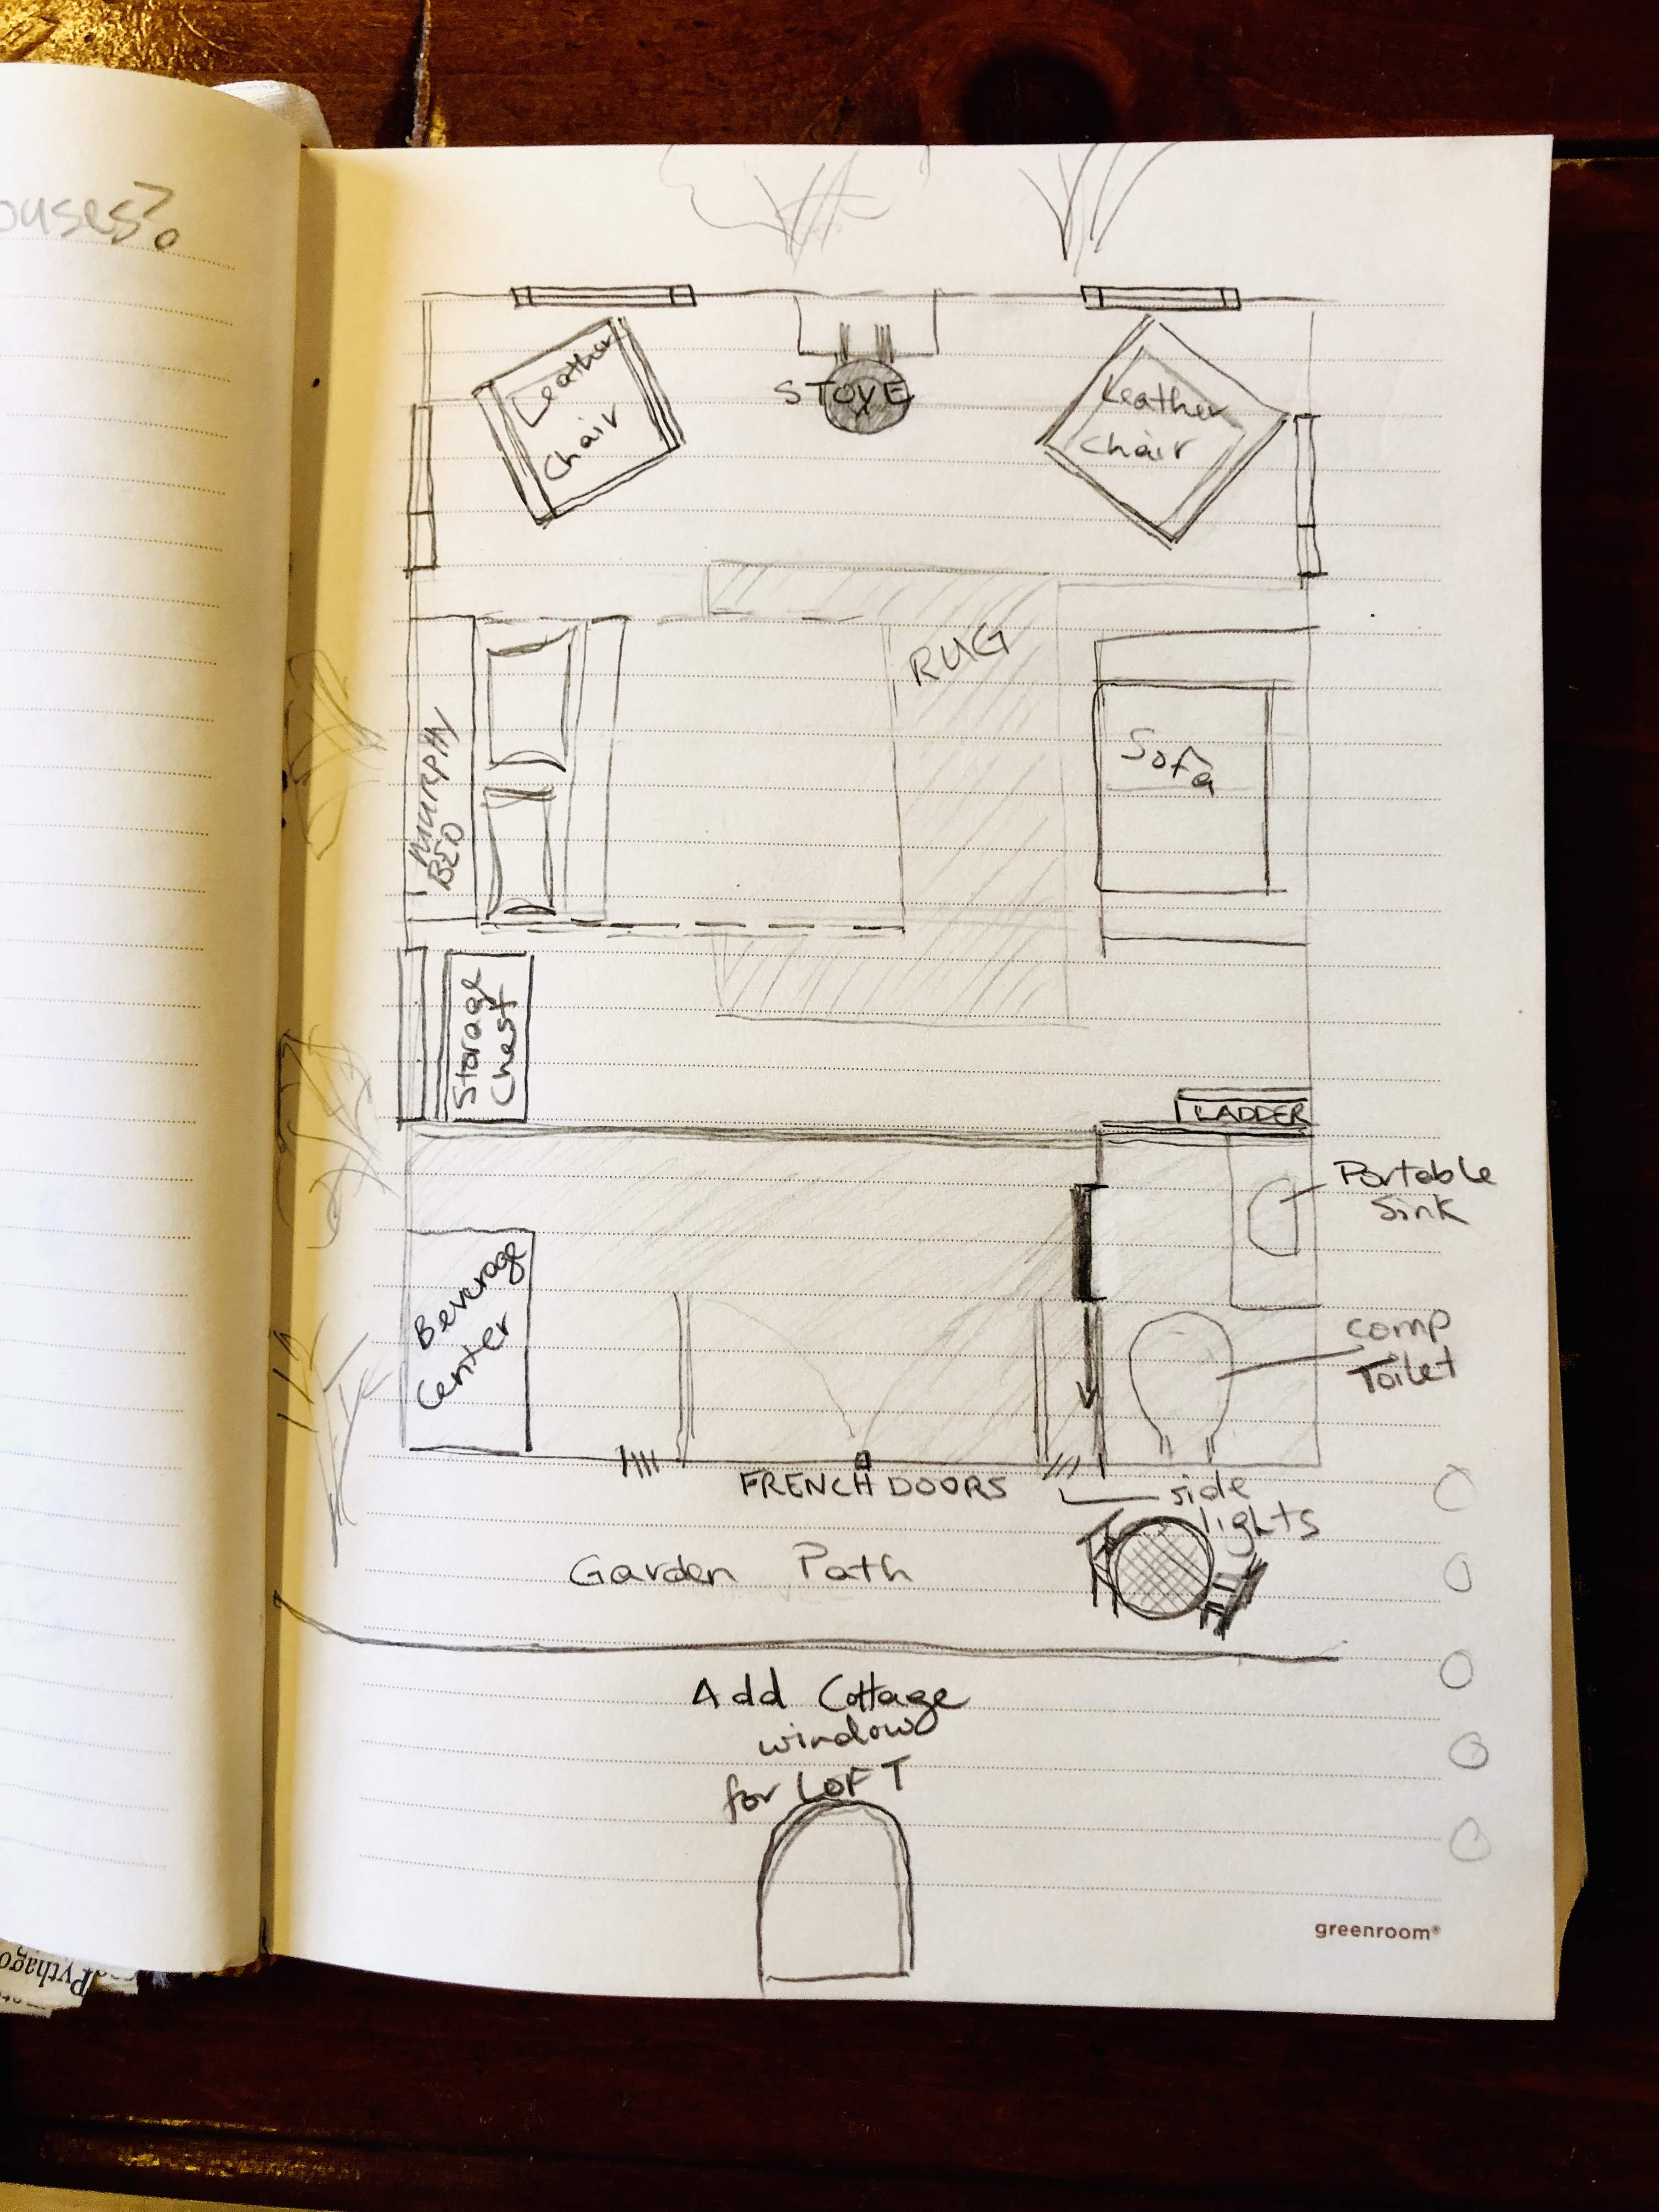 ouses?
Leather
Chair
STOVE
Leather
Chair
RUG
MURPHY
BED
Sofa
Storage
Chest
LADDER
Portable
Sink
Beverage
Center
comp
Toilet
FRENCH DOORS
side
lights
Garden Path
Add Cottage
window
for LOFT
greenroom®
Pythago